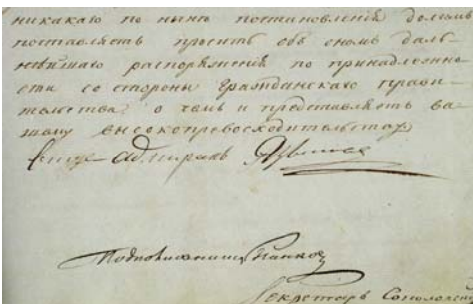 никакаго по нынѣ постановленія долгомъ
поставляетъ просить объ ономъ даль-
нѣйшаго распоряженія по принадлежно-
сти со стороны Гражданскаго прави-
тельства, о чемъ и представляетъ ва-
шему высокопревосходительству
Вице-адмиралъ
Секретарь